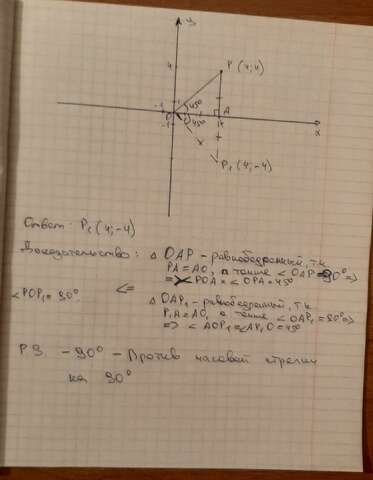 y
4
P (4;4)
45°
-1
1
A
O
45°
4
x
-1
P₁ (4;-4)
Ответ: P₁ (4;-4)
Доказательство: △ OAP - равнобедренный, т.к
PA=AO, а также ∠OAP=90° =>
=> ∠POA = ∠OPA = 45°
∠POP₁ = 90°. <= △ OAP₁ - равнобедренный, т.к
P₁A=AO, а также ∠OAP₁=90° =>
=> ∠AOP₁ = ∠AP₁O = 45°
P.S. -90° - Против часовой стрелки
на 90°